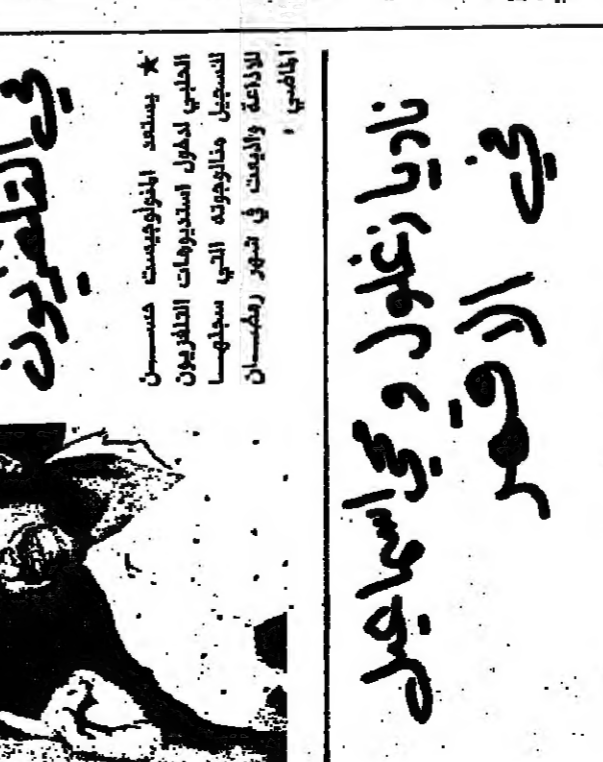 في التلفزيون
★ يستعد المنولوجيست حسن
الحلبي لدخول استديوهات التلفزيون
لتسجيل منالوجوته التي سجلها
للاذاعة واذيعت في شهر رمضان
الماضي .
ناديا زغلول و يحي اسماعيل
في الاقصر